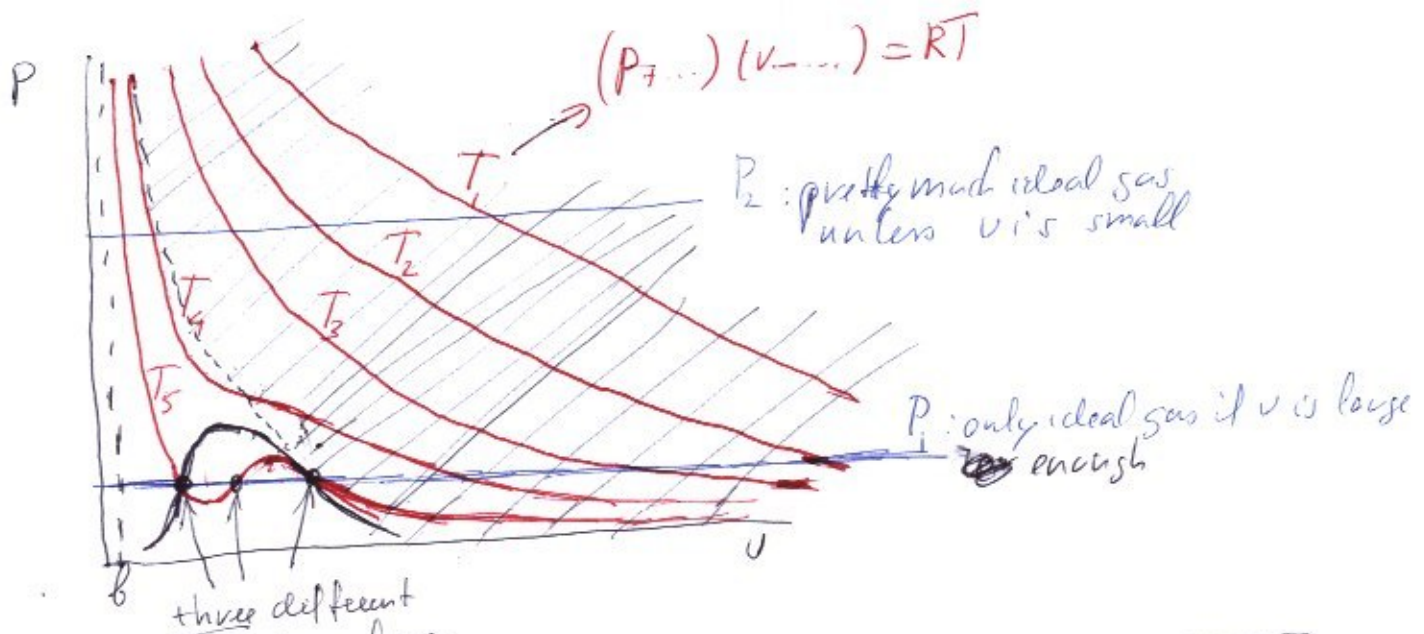 P
(P+...)(v-...) = RT
T₁
P₂ : pretty much ideal gas
unless v is small
T₂
T₄
T₃
T₅
P₁ : only ideal gas if v is large
enough
v
b
three different